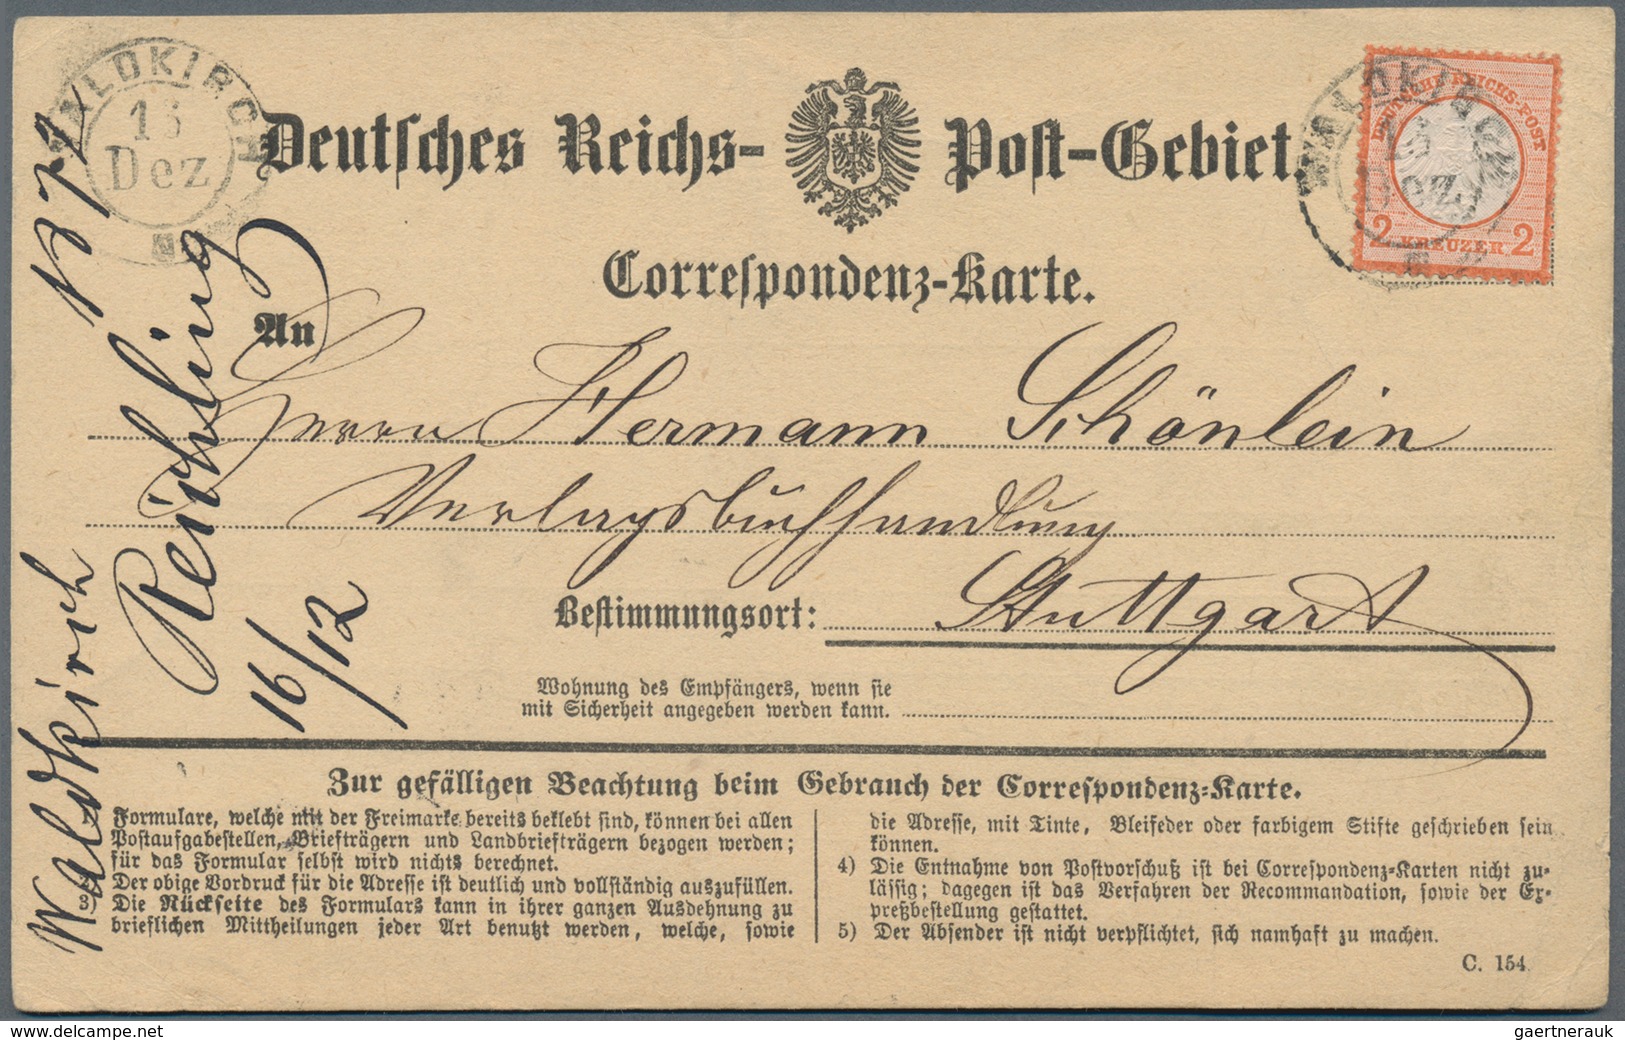 WALDKIRCH
16
Dez
Deutsches Reichs-Post-Gebiet.
DEUTSCHE REICHS-POST
2 KREUZER 2
WALDKIRCH
Dez
Correspondenz-Karte.
An
Herrn Hermann Schönlein
Verlagsbuchhandlung
Bestimmungsort: Stuttgart
Wohnung des Empfängers, wenn sie
mit Sicherheit angegeben werden kann.
Waldkirch
Reichling
16/12
Zur gefälligen Beachtung beim Gebrauch der Correspondenz-Karte.
Formulare, welche mit der Freimarke bereits beklebt sind, können bei allen
Postaufgabestellen, Briefträgern und Landbriefträgern bezogen werden;
für das Formular selbst wird nichts berechnet.
2) Der obige Vordruck für die Adresse ist deutlich und vollständig auszufüllen.
3) Die Rückseite des Formulars kann in ihrer ganzen Ausdehnung zu
brieflichen Mittheilungen jeder Art benutzt werden, welche, sowie
die Adresse, mit Tinte, Bleifeder oder farbigem Stifte geschrieben sein
können.
4) Die Entnahme von Postvorschuß ist bei Correspondenz-Karten nicht zu-
lässig; dagegen ist das Verfahren der Recommandation, sowie der Ex-
preßbestellung gestattet.
5) Der Absender ist nicht verpflichtet, sich namhaft zu machen.
C. 154.
www.delcampe.net
gaertnerauk